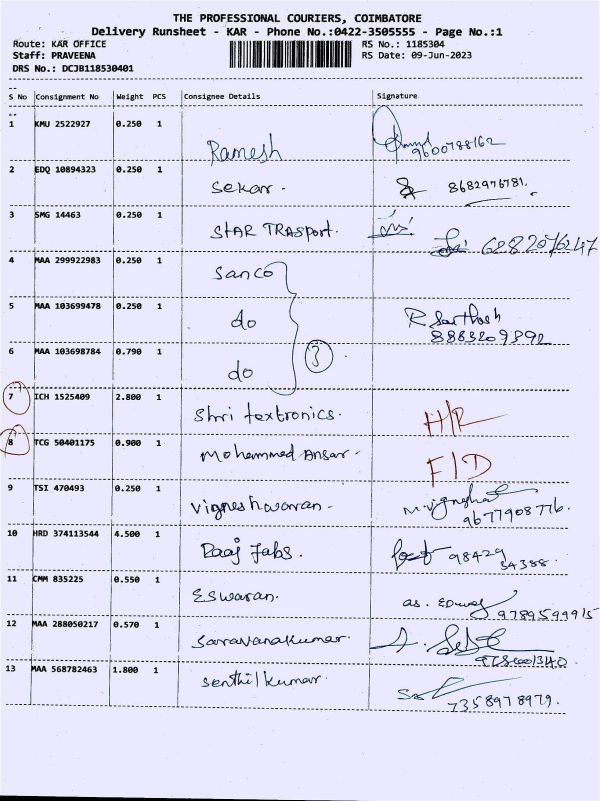 THE PROFESSIONAL COURIERS, COIMBATORE
Delivery Runsheet - KAR - Phone No.:0422-3505555 - Page No.:1
Route: KAR OFFICE RS No.: 1185304
Staff: PRAVEENA RS Date: 09-Jun-2023
DRS No.: DCJB118530401
S No Consignment No Weight PCS Consignee Details Signature
1 KMU 2522927 0.250 1
Ramesh 9600788162
2 EDQ 10894323 0.250 1
Sekar. 8682976781.
3 SMG 14463 0.250 1
STAR TRASport. 6282076247
4 MAA 299922983 0.250 1
Sanco
5 MAA 103699478 0.250 1
do R Santhosh
8883209892
6 MAA 103698784 0.790 1
do 3
7 ICH 1525409 2.800 1
Shri textronics. H/R
8 TCG 50401175 0.900 1
Mohammed Ansar. F/D
9 TSI 470493 0.250 1
Vigneshwaran. 9677908776.
10 HRD 374113544 4.500 1
Raaj Fabs. 98429
54388.
11 CMM 835225 0.550 1
Eswaran. 9789599915
12 MAA 288050217 0.570 1
Saravanakumar.
13 MAA 568782463 1.800 1
Senthilkumar. 7358978979.